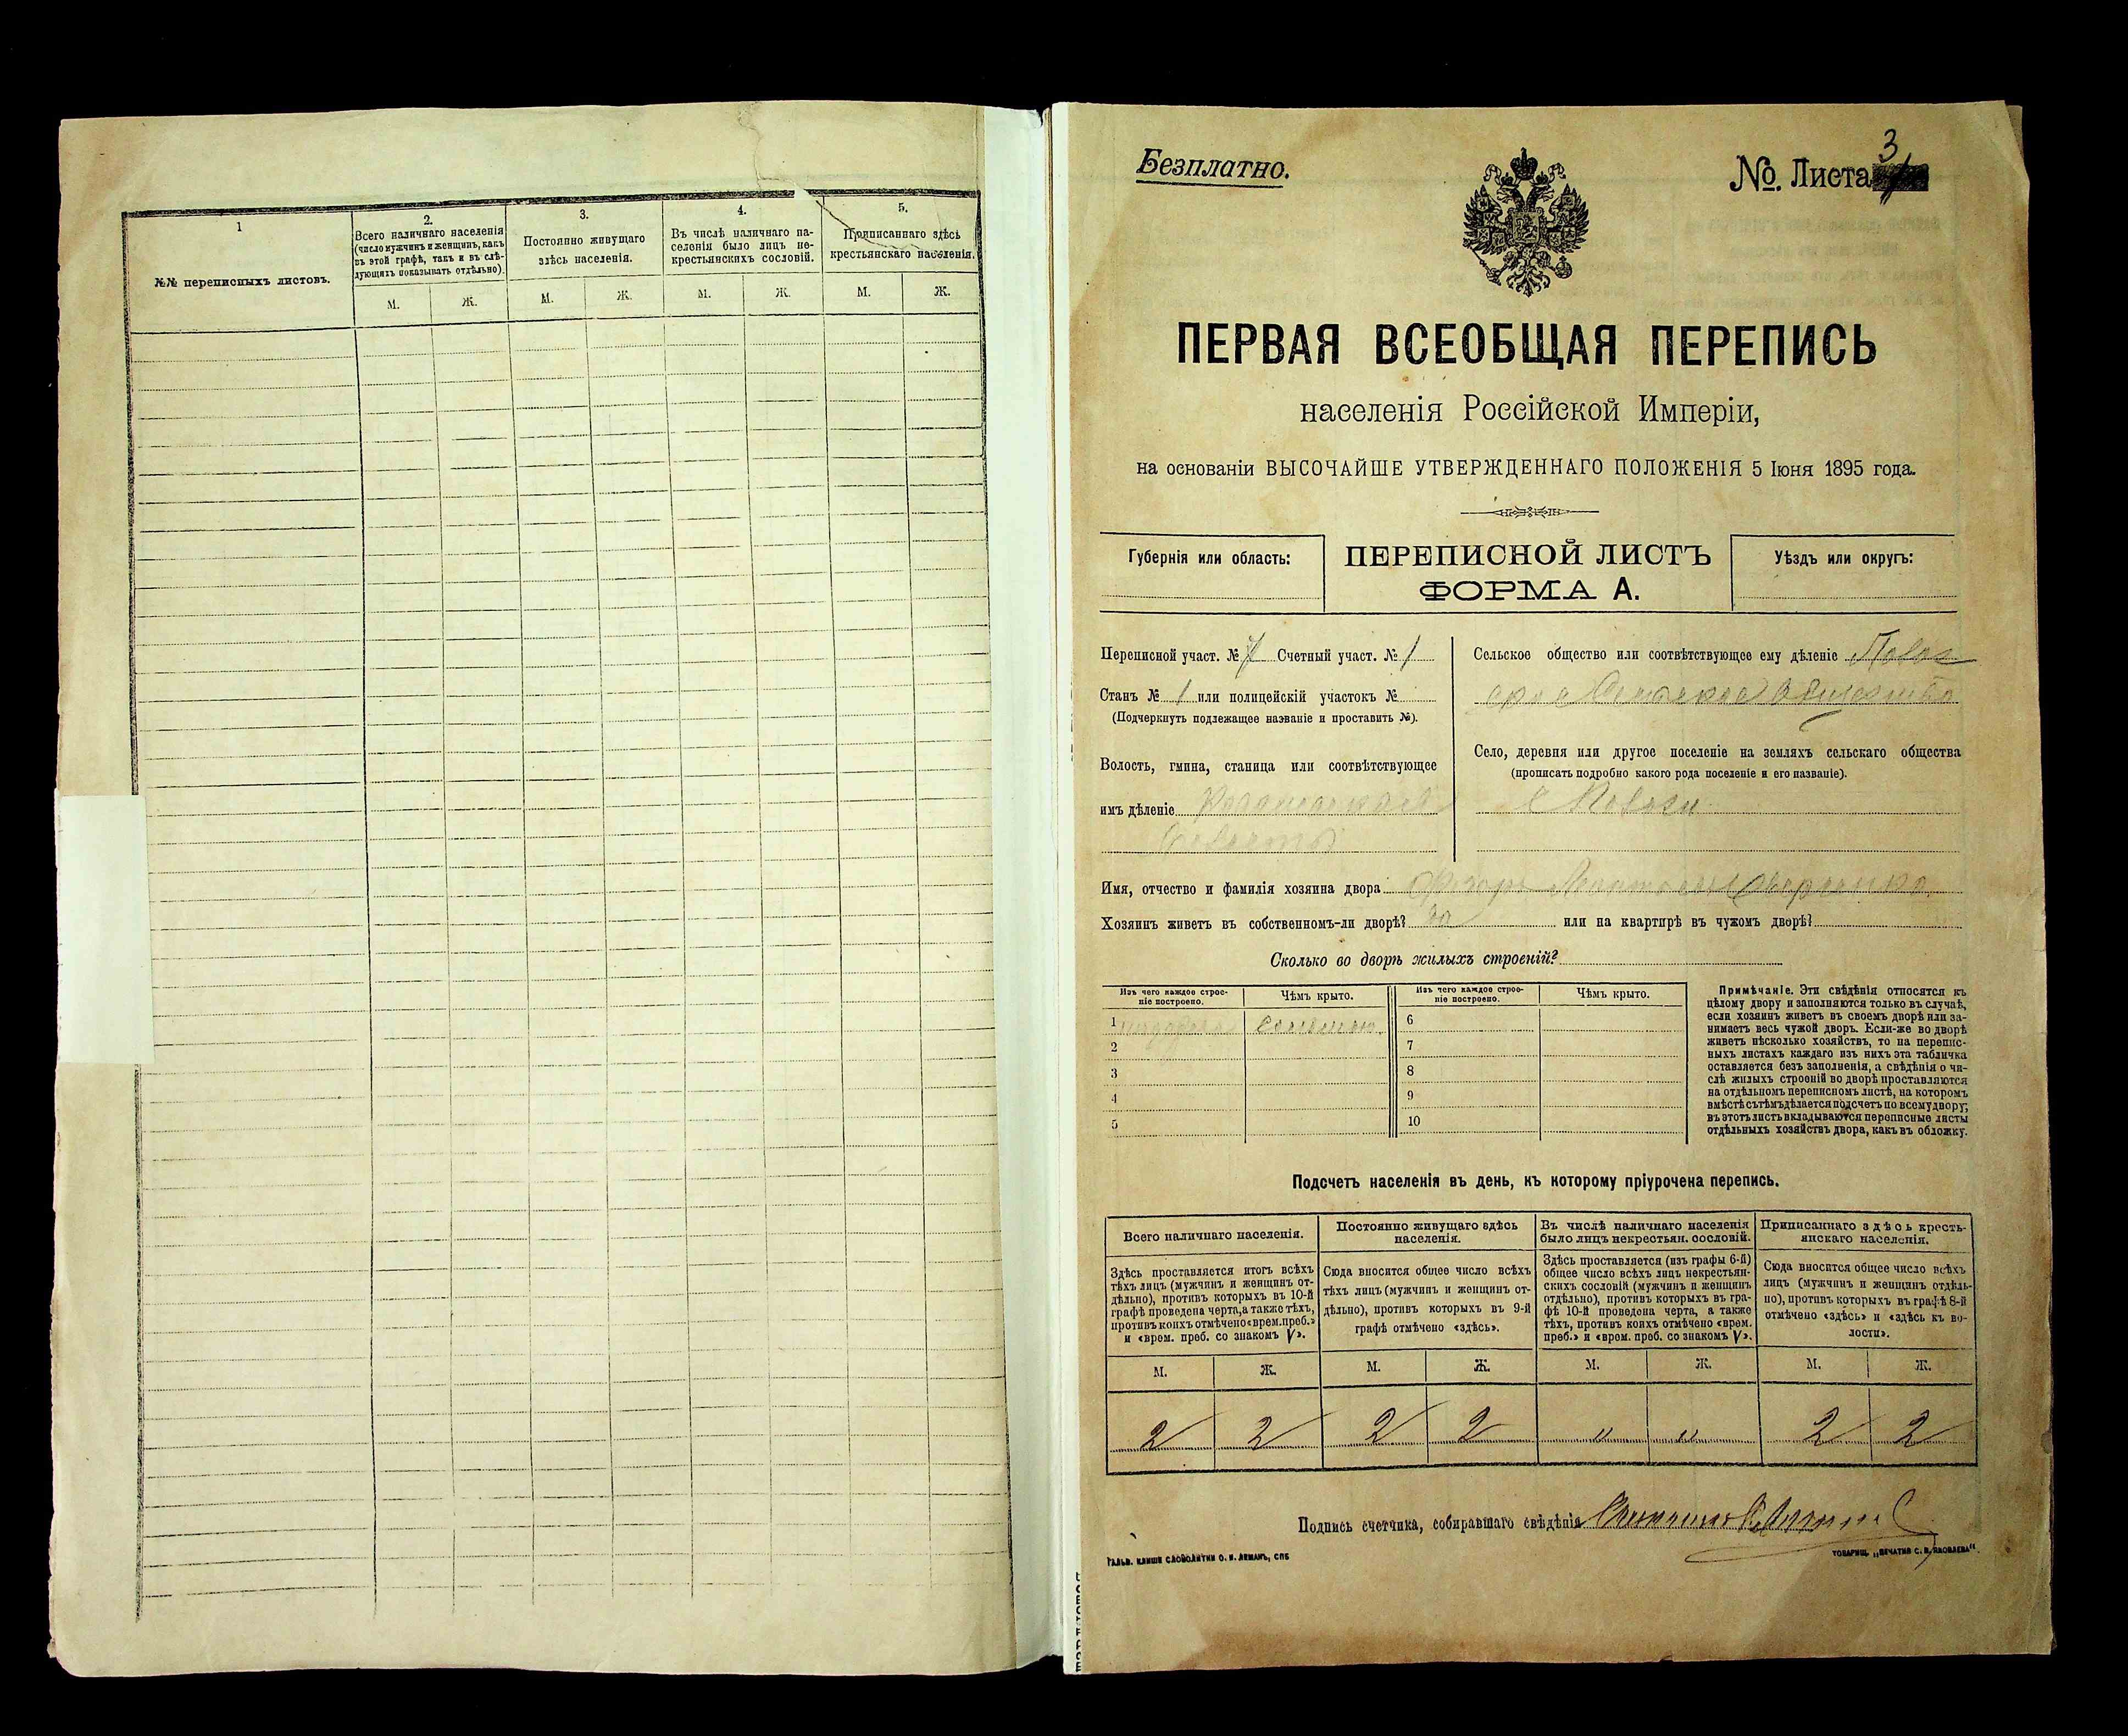 1
№№ переписныхъ листовъ.
2.
Всего наличнаго населенія
(число мужчинъ и женщинъ, какъ
въ этой графѣ, такъ и въ слѣ-
дующихъ показывать отдѣльно).
3.
Постоянно живущаго
здѣсь населенія.
4.
Въ числѣ наличнаго на-
селенія было лицъ не-
крестьянскихъ сословій.
5.
Приписаннаго здѣсь
крестьянскаго населенія.
М. Ж. М. Ж. М. Ж. М. Ж.
Безплатно.
№. Листа 3
ПЕРВАЯ ВСЕОБЩАЯ ПЕРЕПИСЬ
населенія Россійской Имперіи,
на основаніи ВЫСОЧАЙШЕ УТВЕРЖДЕННАГО ПОЛОЖЕНІЯ 5 Іюня 1895 года.
Губернія или область:
ПЕРЕПИСНОЙ ЛИСТЪ
ФОРМА А.
Уѣздъ или округъ:
Переписной участ. № 7 Счетный участ. № 1
Станъ № 1 или полицейскій участокъ №
(Подчеркнуть подлежащее названіе и проставить №).
Волость, гмина, станица или соотвѣтствующее
имъ дѣленіе
Сельское общество или соотвѣтствующее ему дѣленіе
Село, деревня или другое поселеніе на земляхъ сельскаго общества
(прописать подробно какого рода поселеніе и его названіе).
Имя, отчество и фамилія хозяина двора
Хозяинъ живетъ въ собственномъ-ли дворѣ? да или на квартирѣ въ чужомъ дворѣ?
Сколько во дворѣ жилыхъ строеній?
Изъ чего каждое строе-
ніе построено.
Чѣмъ крыто.
Изъ чего каждое строе-
ніе построено.
Чѣмъ крыто.
1 6
2 7
3 8
4 9
5 10
Примѣчаніе. Эти свѣдѣнія относятся къ
цѣлому двору и заполняются только въ случаѣ,
если хозяинъ живетъ въ своемъ дворѣ или за-
нимаетъ весь чужой дворъ. Если-же во дворѣ
живетъ нѣсколько хозяйствъ, то на перепис-
ныхъ листахъ каждаго изъ нихъ эта табличка
оставляется безъ заполненія, а свѣдѣнія о чи-
слѣ жилыхъ строеній во дворѣ проставляются
на отдѣльномъ переписномъ листѣ, на которомъ
вмѣстѣ съ тѣмъ дѣлается подсчетъ по всему двору;
въ этотъ листъ вкладываются переписные листы
отдѣльныхъ хозяйствъ двора, какъ въ обложку.
Подсчетъ населенія въ день, къ которому пріурочена перепись.
Всего наличнаго населенія.
Здѣсь проставляется итогъ всѣхъ
тѣхъ лицъ (мужчинъ и женщинъ от-
дѣльно), противъ которыхъ въ 10-й
графѣ проведена черта, а также тѣхъ,
противъ коихъ отмѣчено «врем. преб.»
и «врем. преб. со знакомъ V».
Постоянно живущаго здѣсь
населенія.
Сюда вносится общее число всѣхъ
тѣхъ лицъ (мужчинъ и женщинъ от-
дѣльно), противъ которыхъ въ 9-й
графѣ отмѣчено «здѣсь».
Въ числѣ наличнаго населенія
было лицъ некрестьян. сословій.
Здѣсь проставляется (изъ графы 6-й)
общее число всѣхъ лицъ некрестьян-
скихъ сословій (мужчинъ и женщинъ
отдѣльно), противъ которыхъ въ гра-
фѣ 10-й проведена черта, а также
тѣхъ, противъ коихъ отмѣчено «врем.
преб.» и «врем. преб. со знакомъ V».
Приписаннаго здѣсь кресть-
янскаго населенія.
Сюда вносится общее число всѣхъ
лицъ (мужчинъ и женщинъ отдѣль-
но), противъ которыхъ въ графѣ 8-й
отмѣчено «здѣсь» и «здѣсь къ во-
лости».
М. Ж. М. Ж. М. Ж. М. Ж.
2 2 2 2 „ „ 2 2
Подпись счетчика, собиравшаго свѣдѣнія
ГАЛЬВ. КЛИШЕ СЛОВОЛИТНИ О. И. ЛЕМАНЪ, СПБ
ТОВАРИЩ. „ПЕЧАТНЯ С. П. ЯКОВЛЕВА“